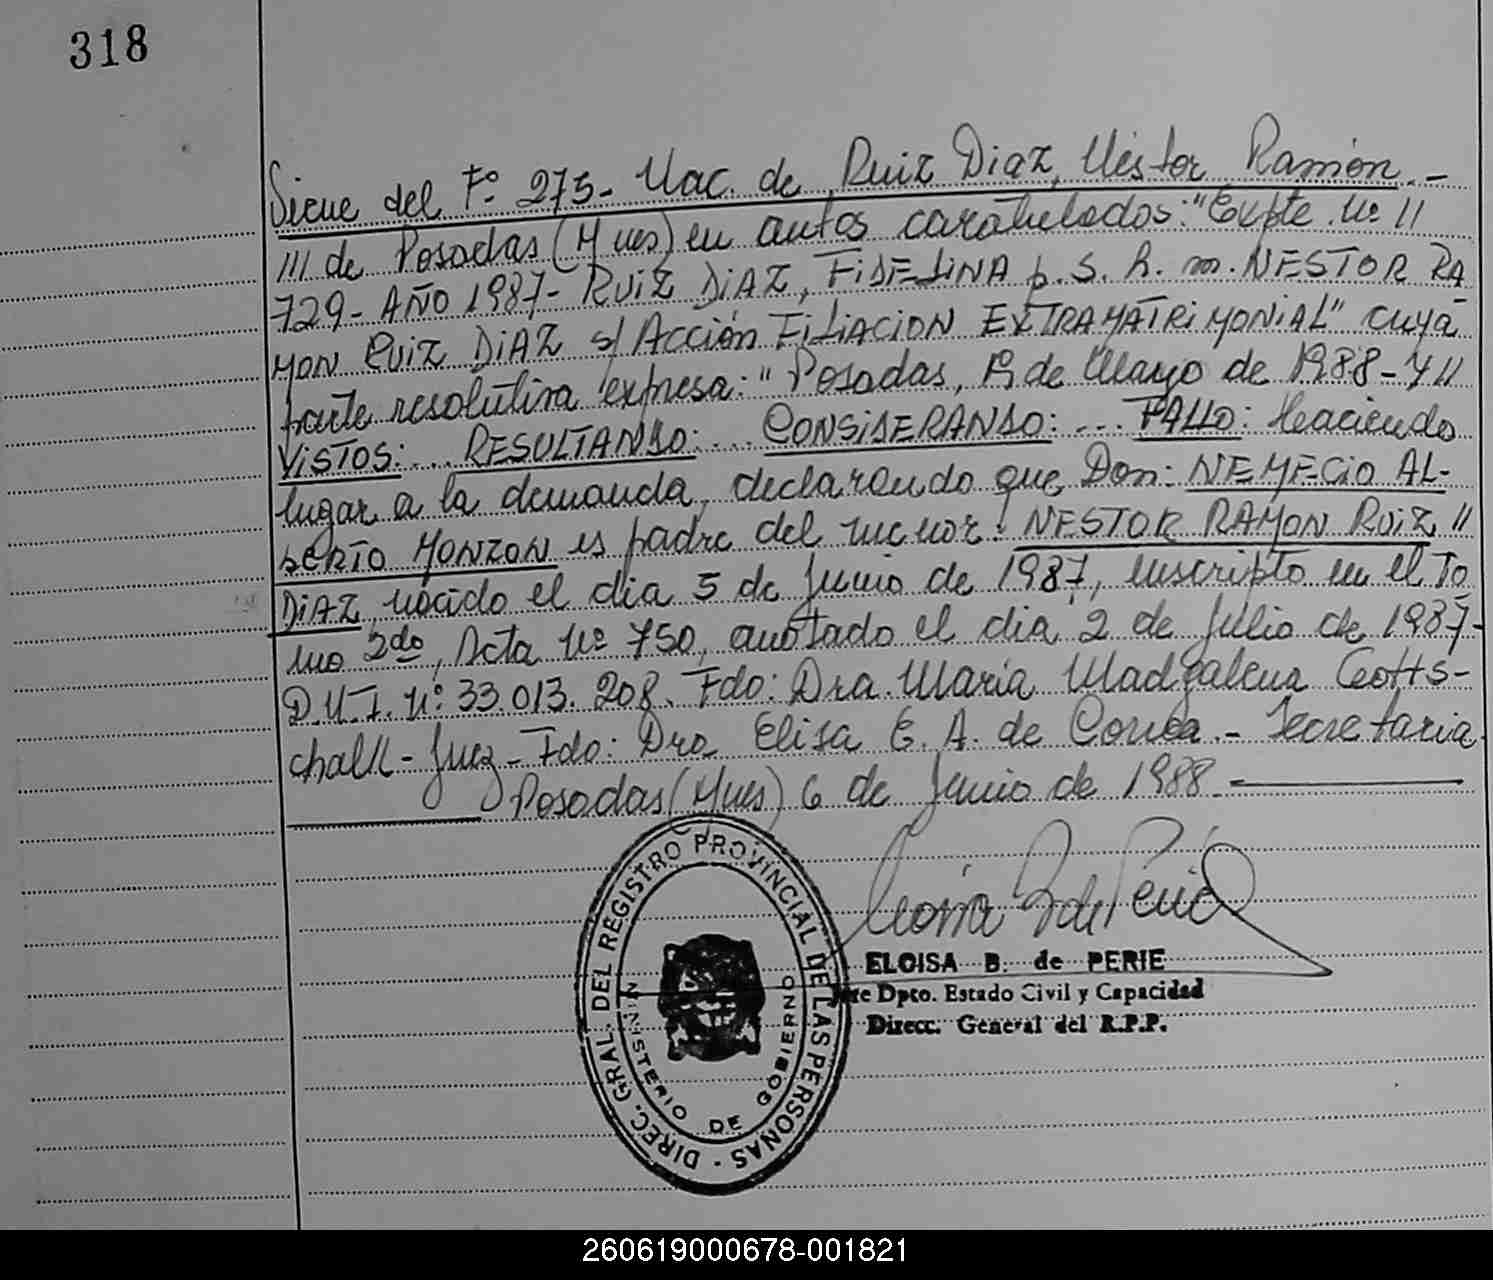 318
Sigue del Fº 275- Nac. de Ruiz Diaz, Néstor Ramón.-
III de Posadas (Mnes) en autos caratulados: "Expte. Nº //
729- AÑO 1987- RUIZ DIAZ, FIDELINA p. S. h. m. NESTOR RA
MON RUIZ DIAZ s/ Acción FiLiACION EXTRAMATRIMONIAL" cuya
parte resolutiva expresa: " Posadas, 19 de Mayo de 1988- Y //
VISTOS:... RESULTANDO:... CONSIDERANDO: ... FALLO: Haciendo
lugar a la demanda, declarando que Don: NEMECIO AL-
BERTO MONZON es padre del menor: NESTOR RAMON RUIZ //
DIAZ, nacido el dia 5 de Junio de 1987, inscripto en el To
mo 2do, Acta Nº 750, anotado el dia 2 de Julio de 1987-
D.N.I. Nº 33.013.208. Fdo: Dra. Maria Madgalena Gotts-
chalk - Juez - Fdo: Dra Elisa E. A. de Correa. - Secretaria.
Posadas (Mnes) 6 de Junio de 1988
DIREC. GRAL. DEL REGISTRO PROVINCIAL DE LAS PERSONAS -
MINISTERIO DE GOBIERNO
ELOISA B. de PERIE
Jefe Dpto. Estado Civil y Capacidad
Direcc. General del R.P.P.
260619000678-001821